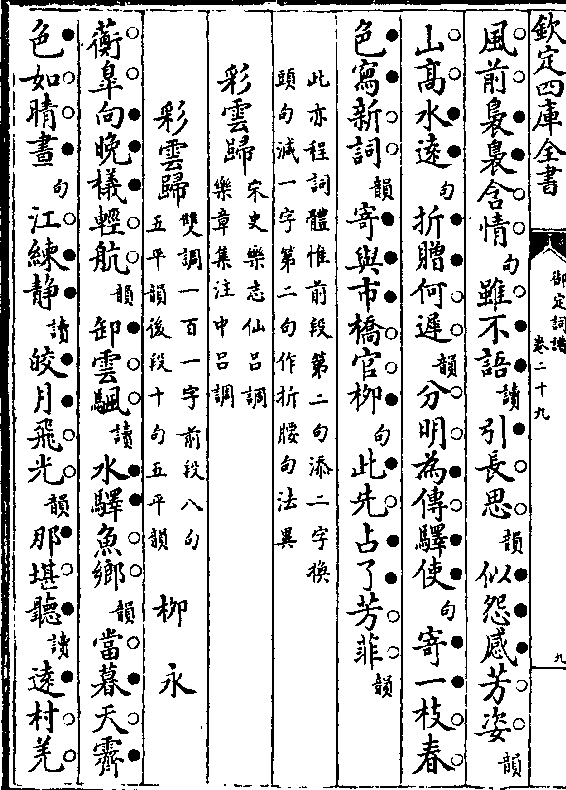 欽定四庫全書
御定詞譜
卷二十九
九
風前裊裊含情句雖不語讀引長思韻似怨感芳姿韻
山髙水逺句折贈何遲韻分明為傳驛使句寄一枝春
色寫新詞韻寄與市橋官栁句此先占了芳菲韻
此亦程詞體惟前段第二句添二字換
頭句減一字第二句作折腰句法異
彩雲歸
宋史樂志仙呂調
樂章集注中呂調
彩雲歸
雙調一百一字前段八句
五平韻後段十句五平韻
栁永
蘅臯向晚檥輕航韻卸雲颿讀水驛魚鄉韻當暮天霽
色如晴晝句江練靜讀皎月飛光韻那堪聽讀逺村羌